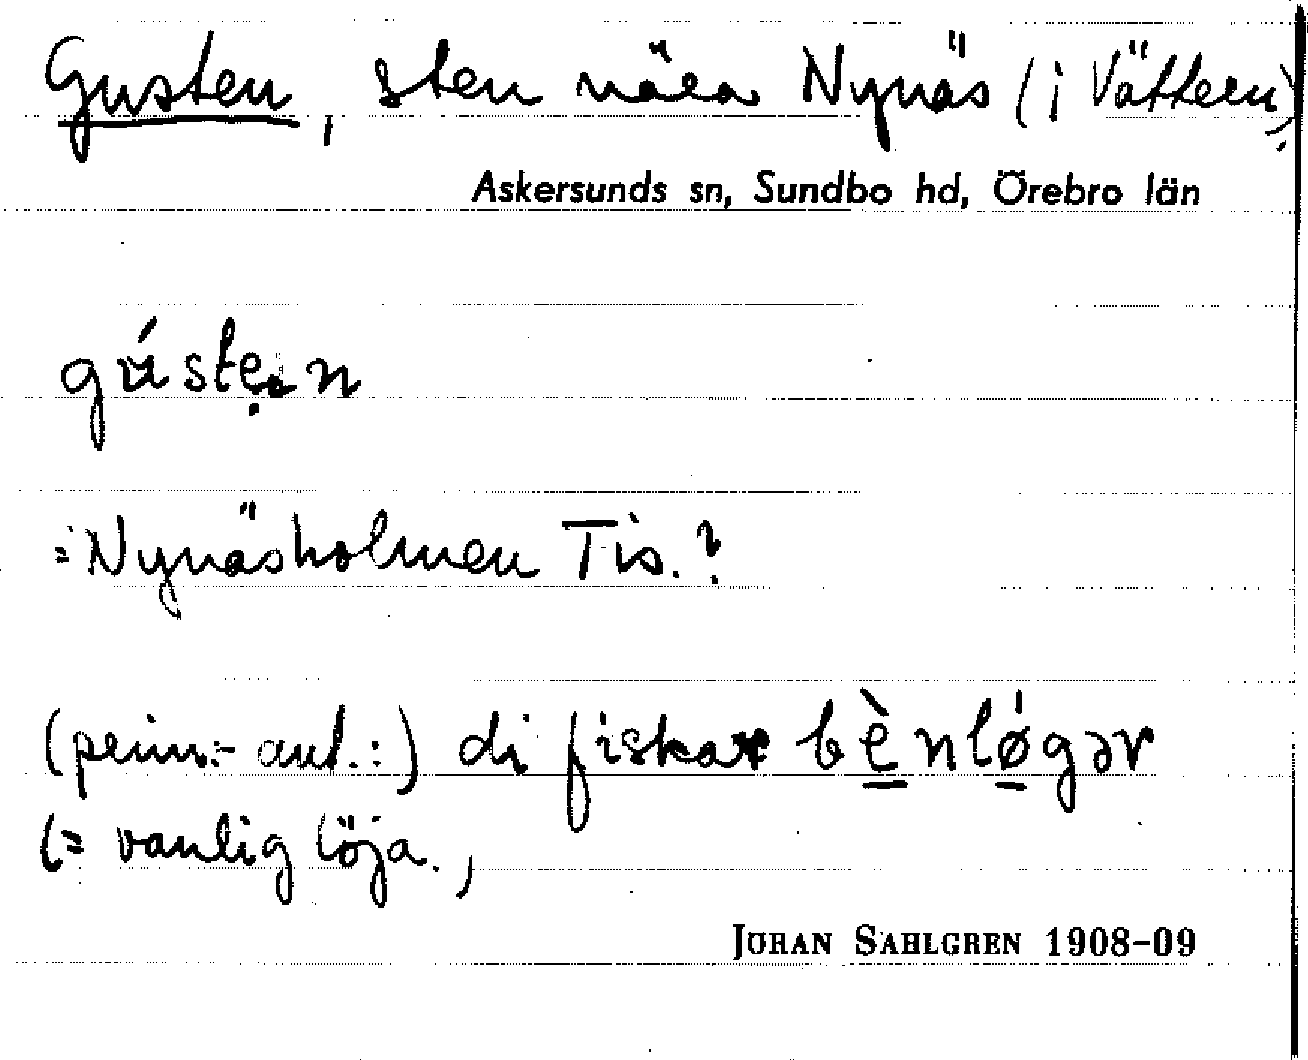 Gusten, sten nära Nynäs (i Vättern)
Askersunds sn, Sundbo hd, Örebro län
gústẹn
= Nynäsholmen Tis.?
(penn.- ant.:) di fiskar bènlǿgər
(= vanlig löja.)
JÖRAN SAHLGREN 1908-09